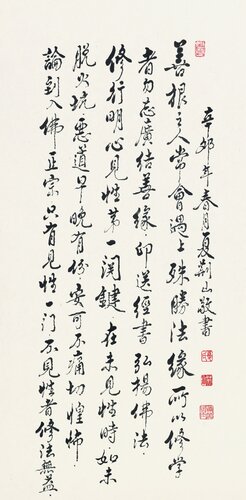 辛卯年春月夏荆山敬書
善根之人常會遇上殊勝法緣所以修學
者勿忘廣結善緣印送經書弘揚佛法
修行明心見性第一関鍵在未見性時如未
脫火坑惡道早晚有份安可不痛切惶怖
論到入佛正宗只有見性一門不見性者修法無益